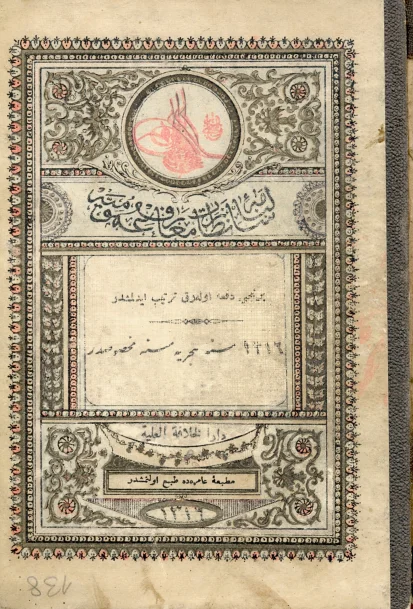 سالنامهٔ نظارت معارف عمومیه
برنجی دفعه اوله‌رق ترتیب ایدلمشدر
١٣١٦ سنهٔ هجریه‌سنه مخصوصدر
دار الخلافة العلية
مطبعهٔ عامره‌ده طبع اولنمشدر
١٣١٦
138